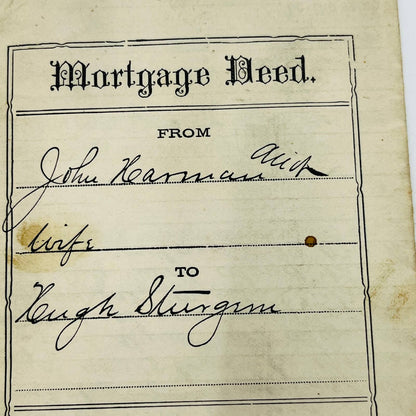 Mortgage Deed.
FROM
John Harman and
wife
TO
Hugh Sturgeon